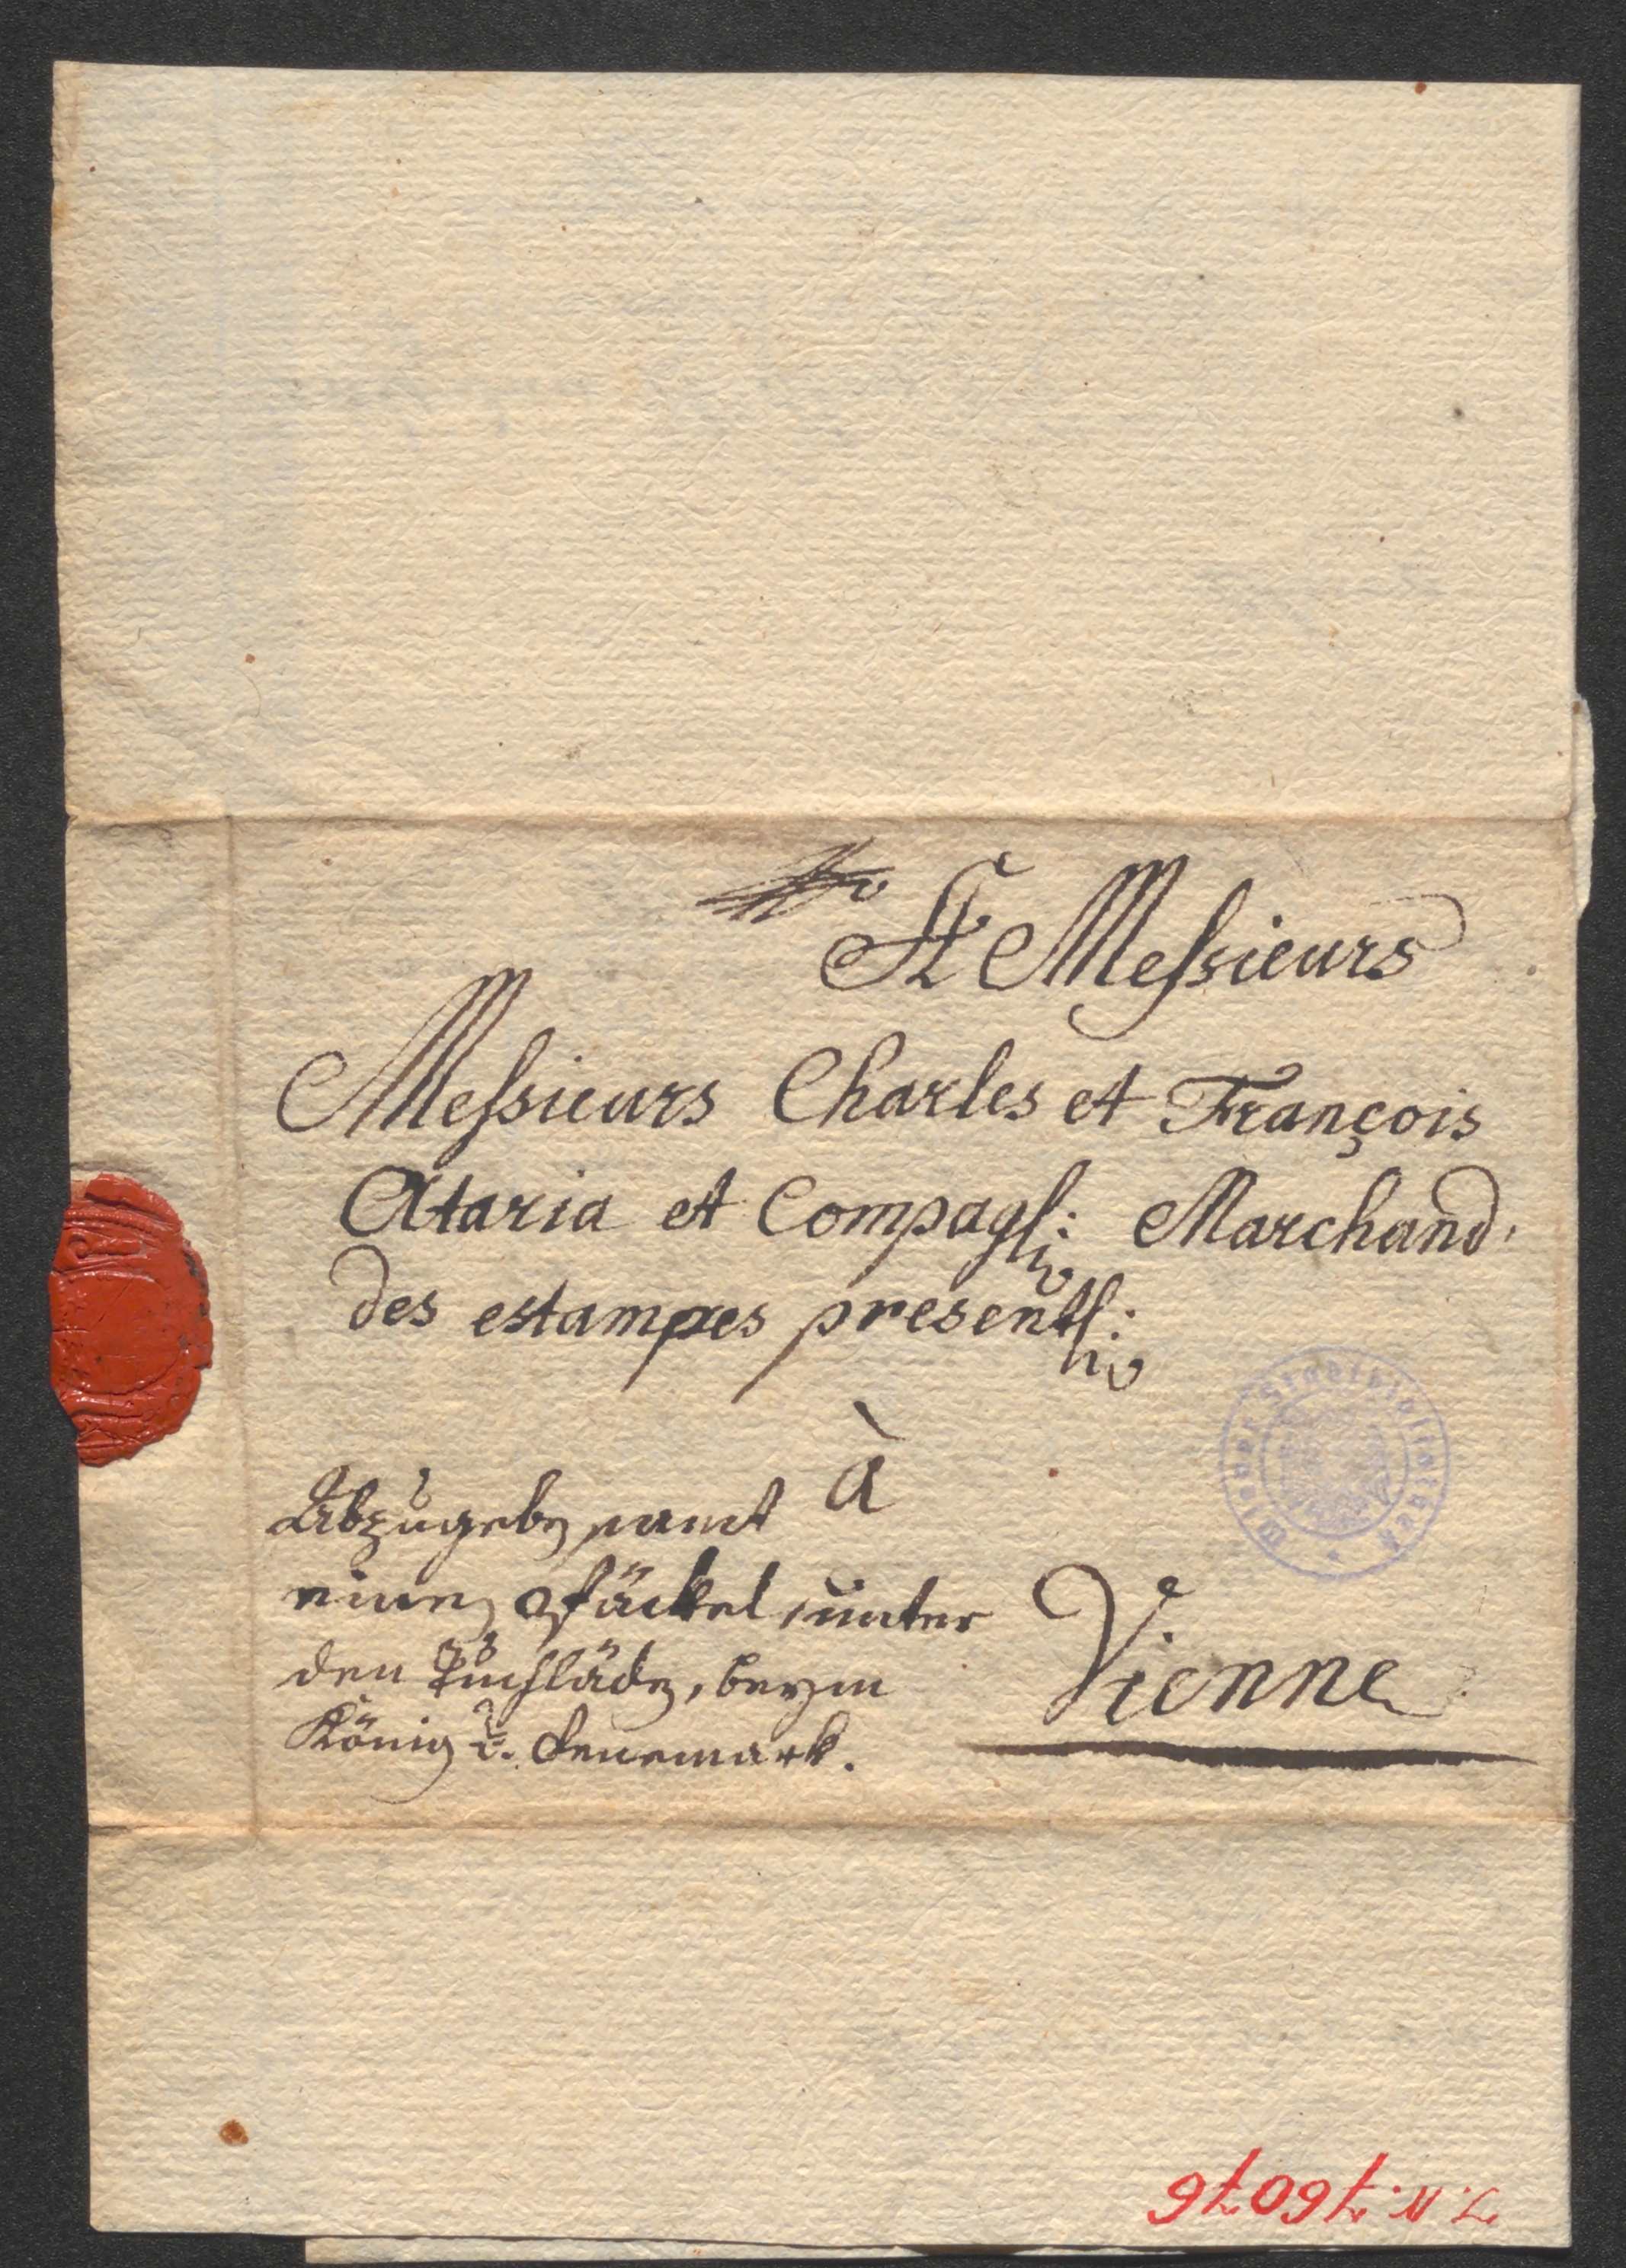 A Messieurs
Messieurs Charles et François
Ataria et Compag: Marchand
des estampes present:
à
Vienne
Abzugeben samt
einen Päckel, unter
den Tuchläden, beym
König v. Denemark.
Wiener Stadtbibliothek
J.N. 76076